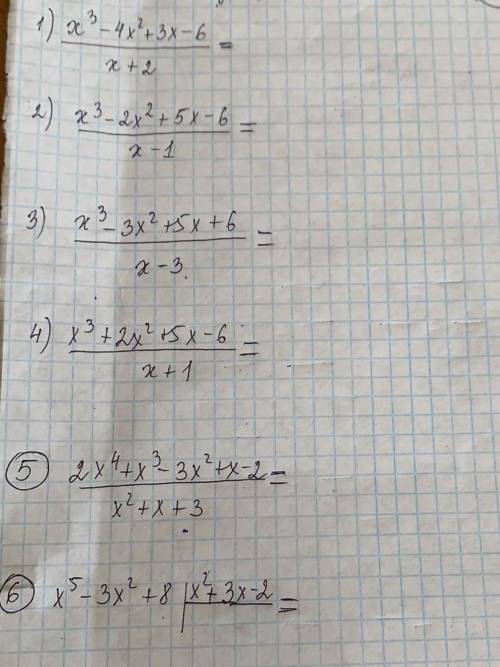 1) x³ - 4x² + 3x - 6
x + 2 =
2) x³ - 2x² + 5x - 6
x - 1 =
3) x³ - 3x² + 5x + 6
x - 3 =
4) x³ + 2x² + 5x - 6
x + 1 =
5 2x⁴ + x³ - 3x² + x - 2 =
x² + x + 3
6 x⁵ - 3x² + 8 | x² + 3x - 2 =